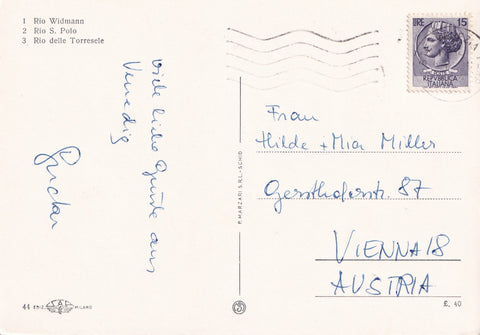 1 Rio Widmann
2 Rio S. Polo
3 Rio delle Torresele
LIRE 15
REPVBBLICA
ITALIANA
Viele liebe Grüße aus
Venedig
P. MARZARI S.R.L. - SCHIO
Frau
Hilde + Mia Miller
Gersthoferstr. 87
VIENNA 18
AUSTRIA
44
MILANO
£. 40